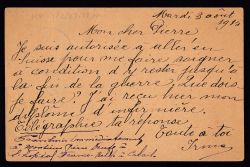 Mardi 3 août
1915
Mon cher Pierre
Je suis autorisée à aller en
Suisse pour me faire soigner
à condition d'y rester jusqu'à
la fin de la guerre, que dois
je faire? J'ai reçu hier mon
diplôme d'infirmière.
Télégraphie ta réponse.
Toute à toi
Irma